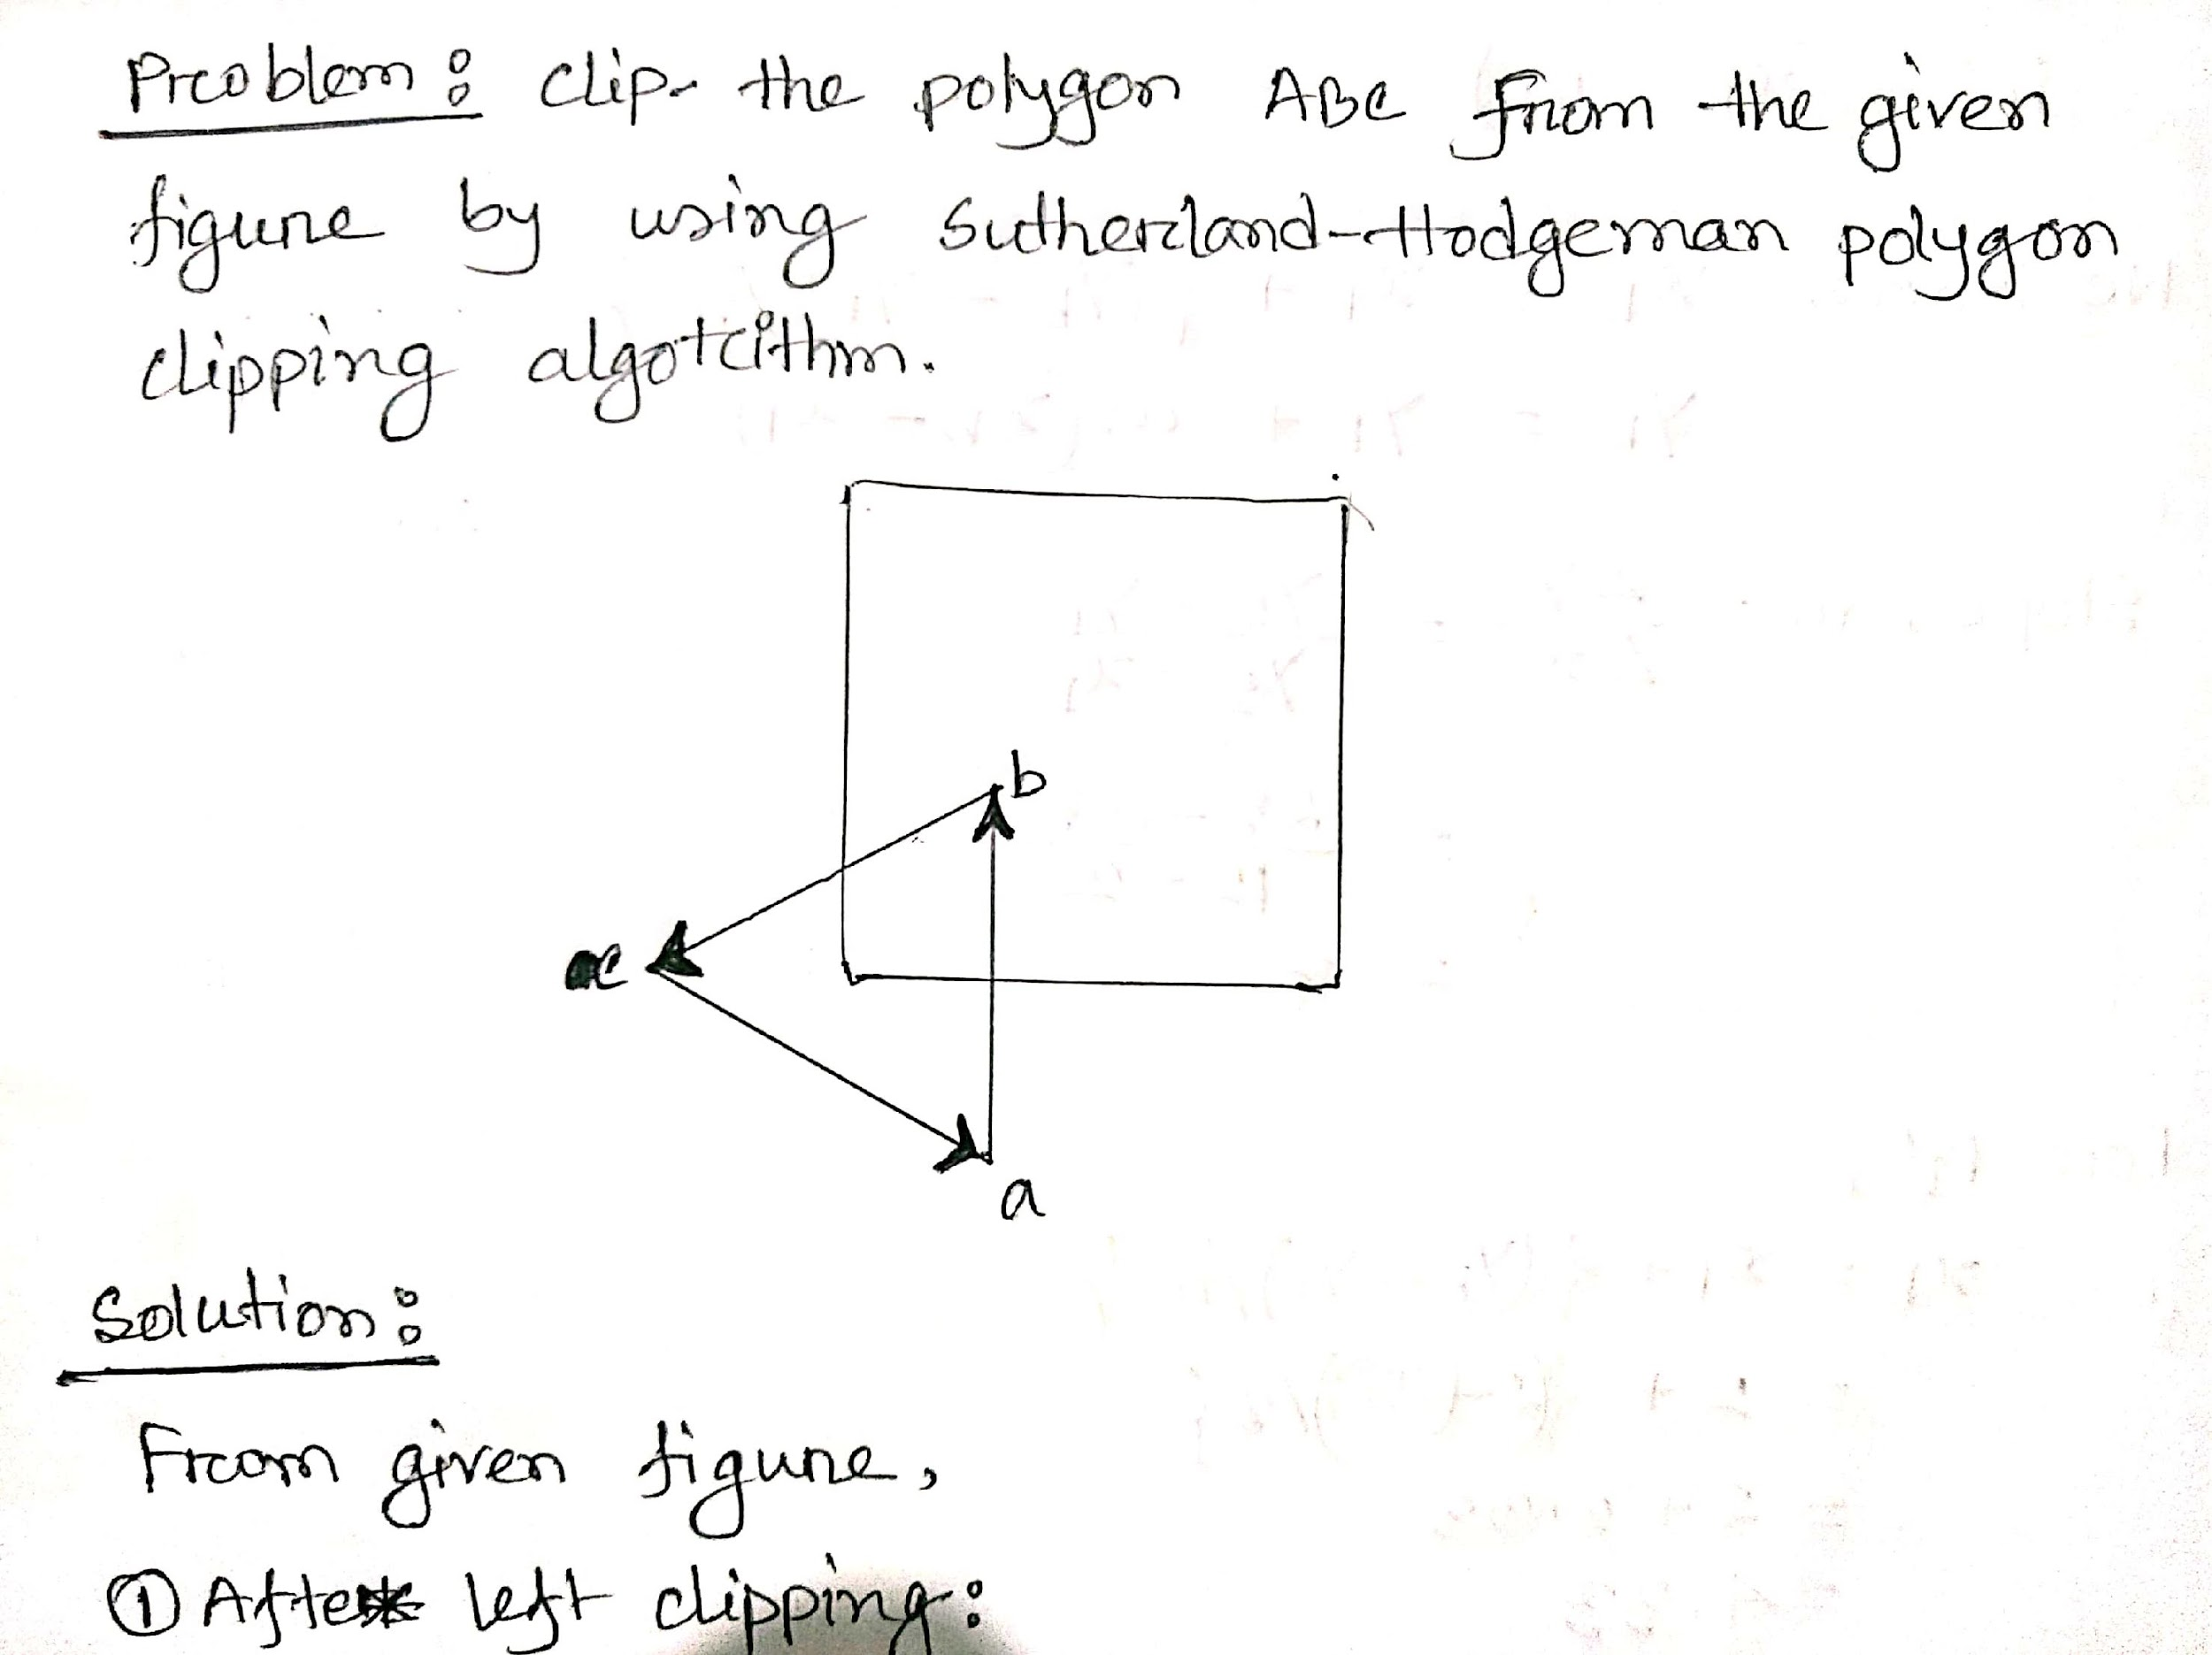 Problem: Clip the polygon ABC from the given
figure by using Sutherland-Hodgeman polygon
clipping algorithm.
b
c
a
Solution:
From given figure,
① After left clipping: